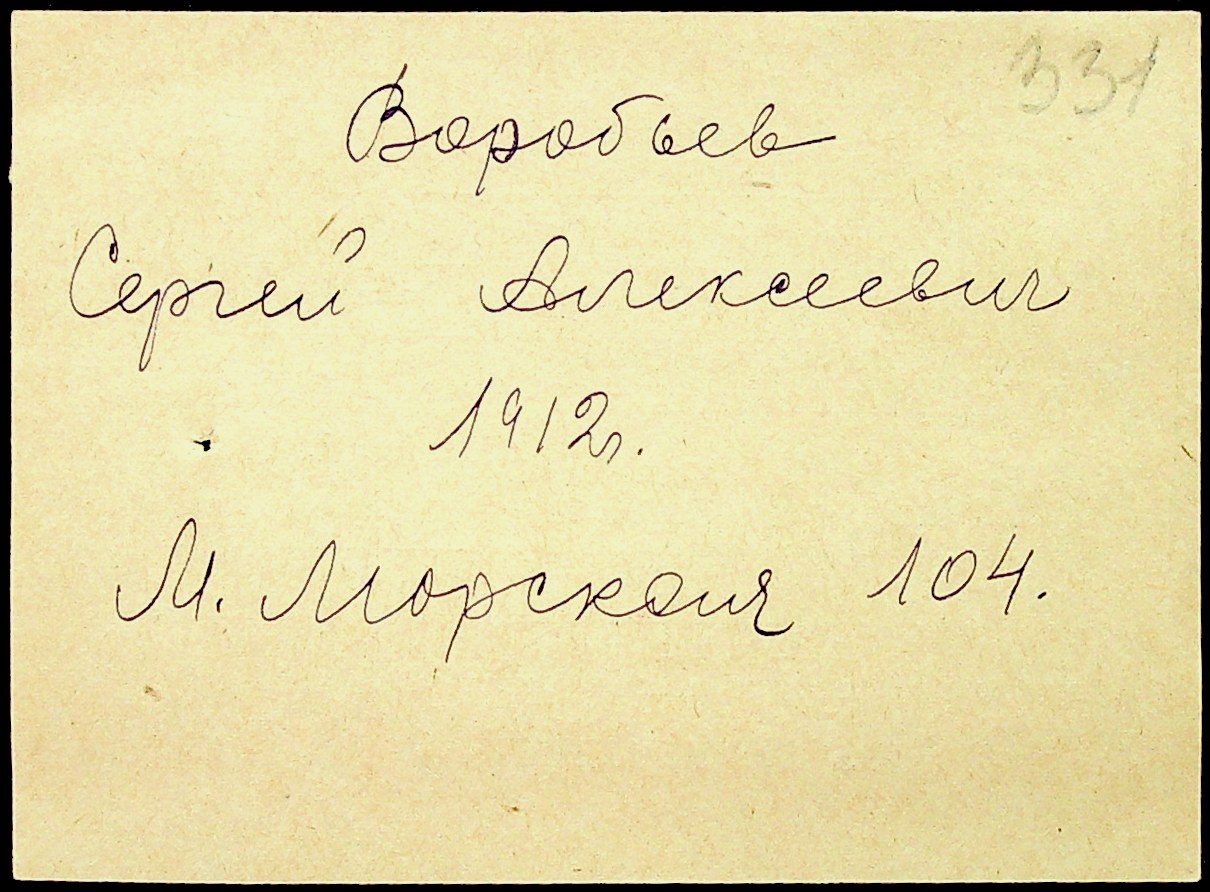 331
Воробьев
Сергей Алексеевич
1912г.
М. Морская 104.